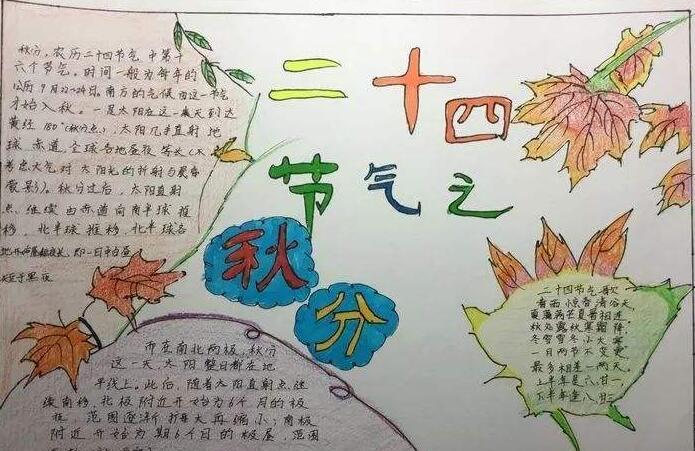 二十四
节气之
秋分
秋分,农历二十四节气中第十
六个节气。时间一般为每年的
公历9月22~24日。南方的气候由这一节气
才始入秋。一是太阳在这一天到达
黄经180°(秋分点),太阳几乎直射地
球赤道,全球各地昼夜等长(不
考虑大气对太阳光的折射与晨昏
蒙影)。秋分过后,太阳直射
点继续由赤道向南半球推
移,北半球各
地开始昼短夜长,即一日中白昼
短于黑夜
而在南北两极,秋分
这一天太阳整日都在地
平线上。此后,随着太阳直射点继
续南移,北极附近开始为6个月的极
夜,范围逐渐扩大再缩小;南极
附近开始为期6个月的极昼,范围
二十四节气歌
春雨惊春清谷天
夏满芒夏暑相连
秋处露秋寒霜降
冬雪雪冬小大寒
一月两节不变更
最多相差一两天
上半年是六、廿一
下半年逢八、廿三